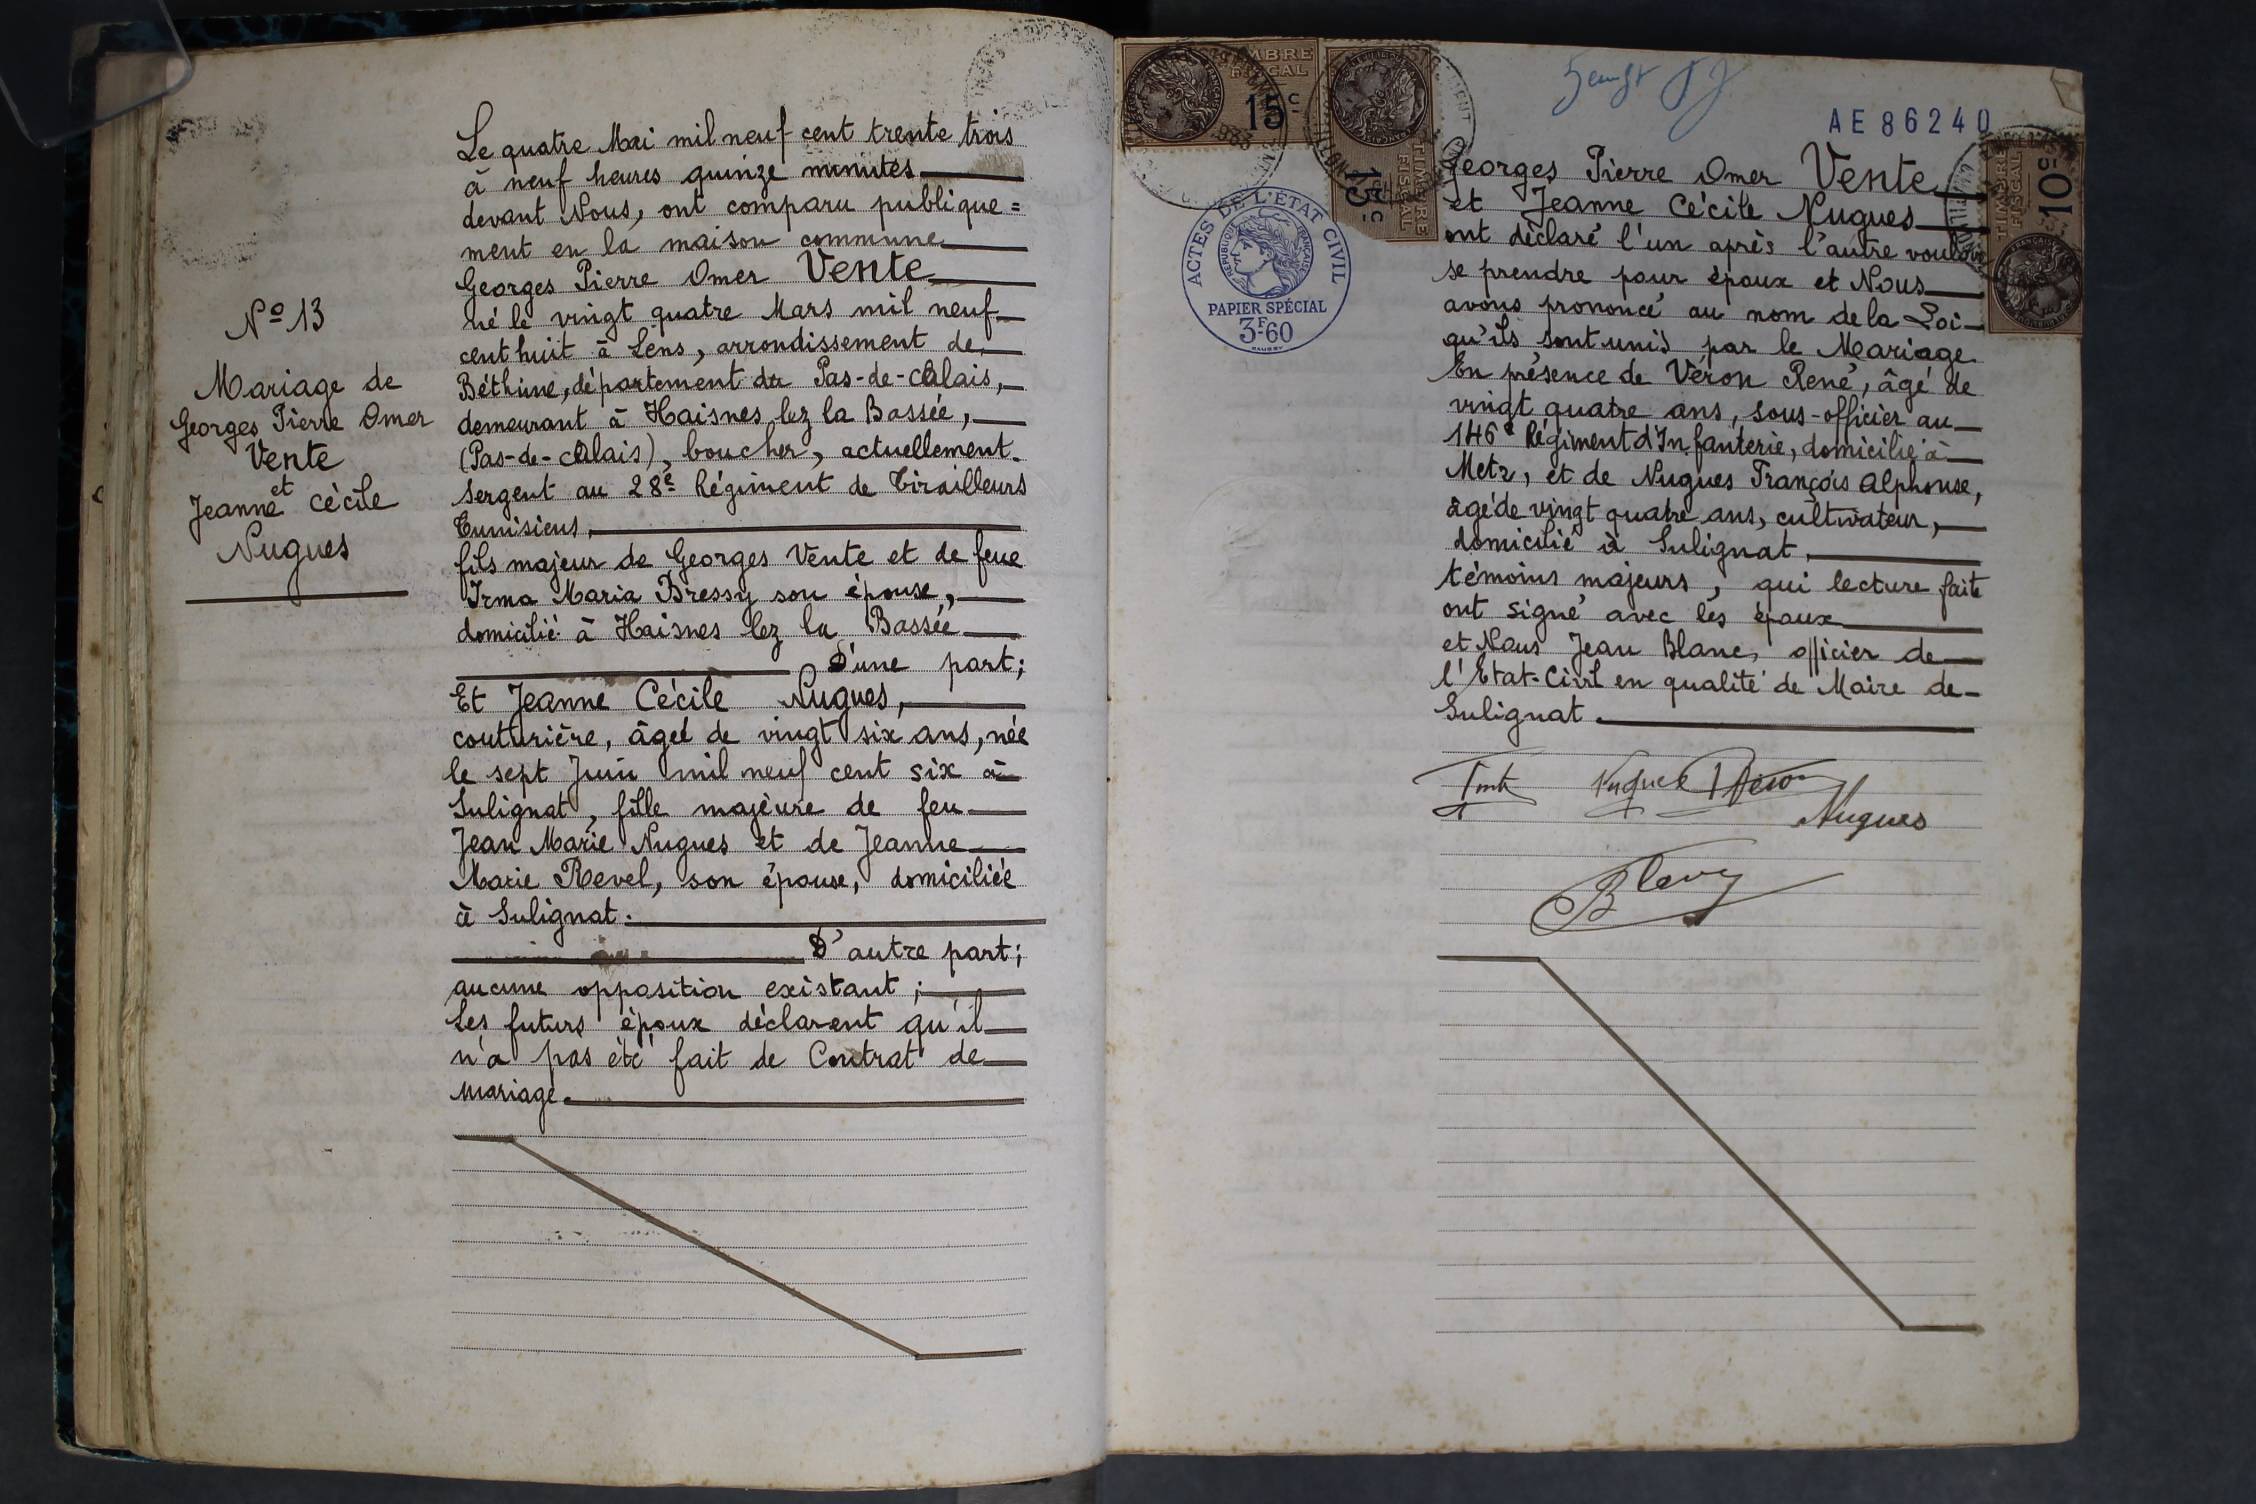 Nº 13
Mariage de
Georges Pierre Omer
Vente
et
Jeanne Cécile
Nugues
Le quatre Mai mil neuf cent trente trois
à neuf heures quinze minutes
devant Nous, ont comparu publique=
ment en la maison commune
Georges Pierre Omer Vente
né le vingt quatre Mars mil neuf
cent huit à Lens, arrondissement de
Béthune, département du Pas-de-Calais,
demeurant à Haisnes lez la Bassée,
(Pas-de-Calais), boucher, actuellement
Sergent au 28e Régiment de Tirailleurs
Tunisiens,
fils majeur de Georges Vente et de feue
Irma Maria Bressy son épouse,
domicilié à Haisnes lez la Bassée
D'une part;
Et Jeanne Cécile Nugues,
couturière, âgée de vingt six ans, née
le sept Juin mil neuf cent six à
Sulignat, fille majeure de feu
Jean Marie Nugues et de Jeanne
Marie Revel, son épouse, domiciliée
à Sulignat.
D'autre part;
aucune opposition existant;
Les futurs époux déclarent qu'il
n'a pas été fait de Contrat de
mariage.
TIMBRE
FISCAL
15c
TIMBRE
FISCAL
15c
AE 86240
TIMBRE
FISCAL
10c
ACTES DE L'ÉTAT CIVIL
RÉPUBLIQUE FRANÇAISE
PAPIER SPÉCIAL
3F60
Georges Pierre Omer Vente
et Jeanne Cécile Nugues
ont déclaré l'un après l'autre vouloir
se prendre pour époux et Nous
avons prononcé au nom de la Loi
qu'ils sont unis par le Mariage
En présence de Véron René, âgé de
vingt quatre ans, sous-officier au
146e Régiment d'Infanterie, domicilié à
Metz, et de Nugues François Alphonse,
âgé de vingt quatre ans, cultivateur,
domicilié à Sulignat,
témoins majeurs, qui lecture faite
ont signé avec les époux
et Nous Jean Blanc, officier de
l'Etat-Civil en qualité de Maire de
Sulignat.
Nugues
Nugues